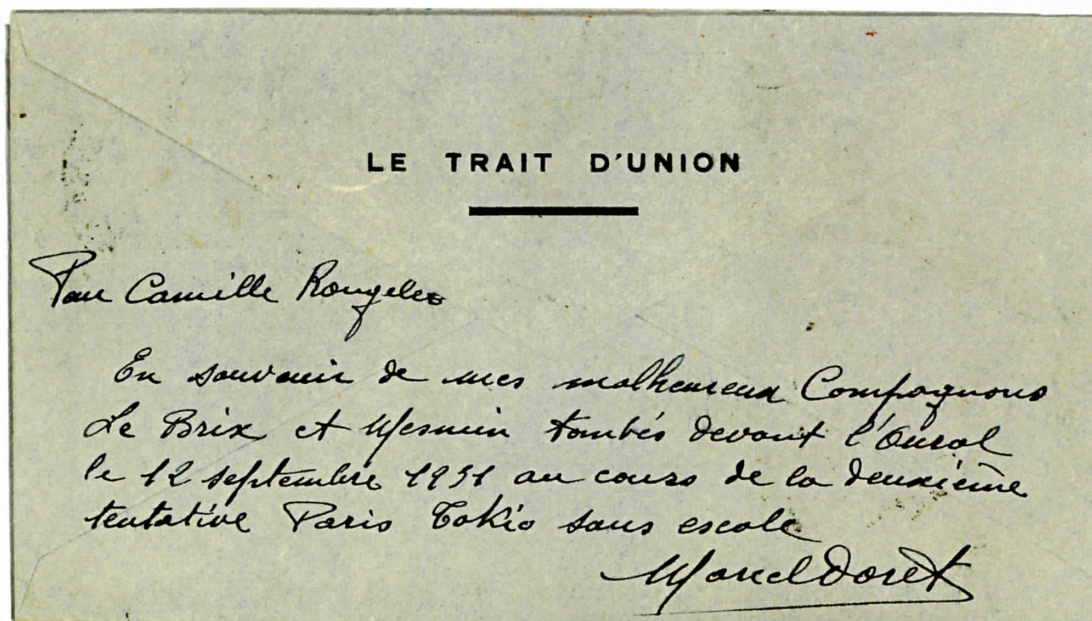 LE TRAIT D'UNION
Pour Camille Rougelet
En souvenir de mes malheureux Compagnons
Le Brix et Mesmin tombés devant l'Oural
le 12 septembre 1931 au cours de la deuxième
tentative Paris Tokio sans escale
Marcel Doret